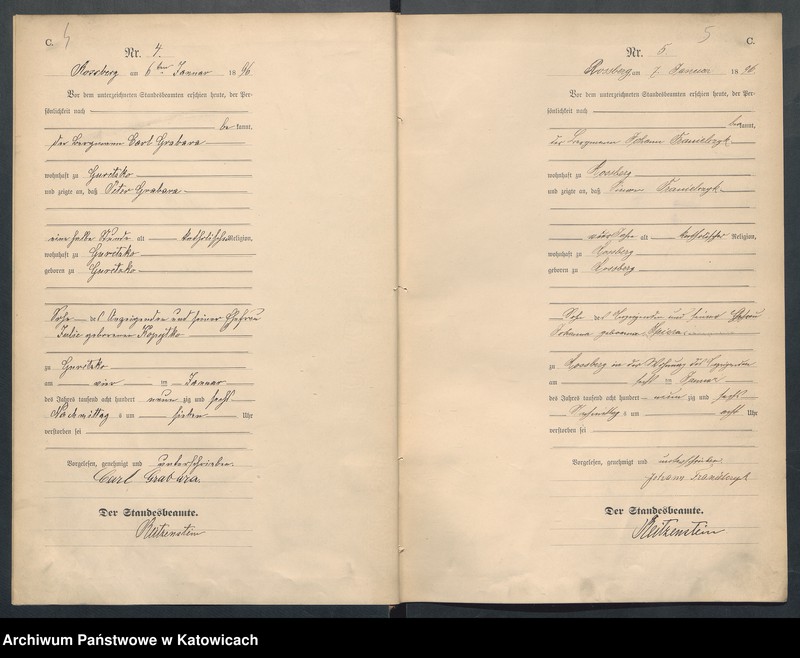 C. 4
Nr. 4.
Rossberg am 6ten Januar 1896
Vor dem unterzeichneten Standesbeamten erschien heute, der Per-
sönlichkeit nach
be kannt,
der Bergmann Carl Grabara
wohnhaft zu Guretzko
und zeigte an, daß Peter Grabara
eine halbe Stunde alt katholischer Religion,
wohnhaft zu Guretzko
geboren zu Guretzko
Sohn des Anzeigenden und seiner Ehefrau
Julie geborenen
zu Guretzko
am vier ten Januar
des Jahres tausend acht hundert neun zig und sechs
Nachmittag s um sieben Uhr
verstorben sei
Vorgelesen, genehmigt und unterschrieben.
Carl Grabara.
Der Standesbeamte.
Reitzenstein
5 C.
Nr. 5
Rossberg am 7. Januar 1896
Vor dem unterzeichneten Standesbeamten erschien heute, der Per-
sönlichkeit nach
be kannt,
der Bergmann Johann Franielczyk
wohnhaft zu Rossberg
und zeigte an, daß Simon Franielczyk
alt katholischer Religion,
wohnhaft zu Rossberg
geboren zu Rossberg
Sohn des Anzeigenden und seiner Ehefrau
Johanna geborene
zu Rossberg in der Wohnung des Anzeigenden
am sechs ten Januar
des Jahres tausend acht hundert neun zig und sechs
Nachmittag s um acht Uhr
verstorben sei
Vorgelesen, genehmigt und unterschrieben.
Johann Franielczyk
Der Standesbeamte.
Reitzenstein
Archiwum Państwowe w Katowicach